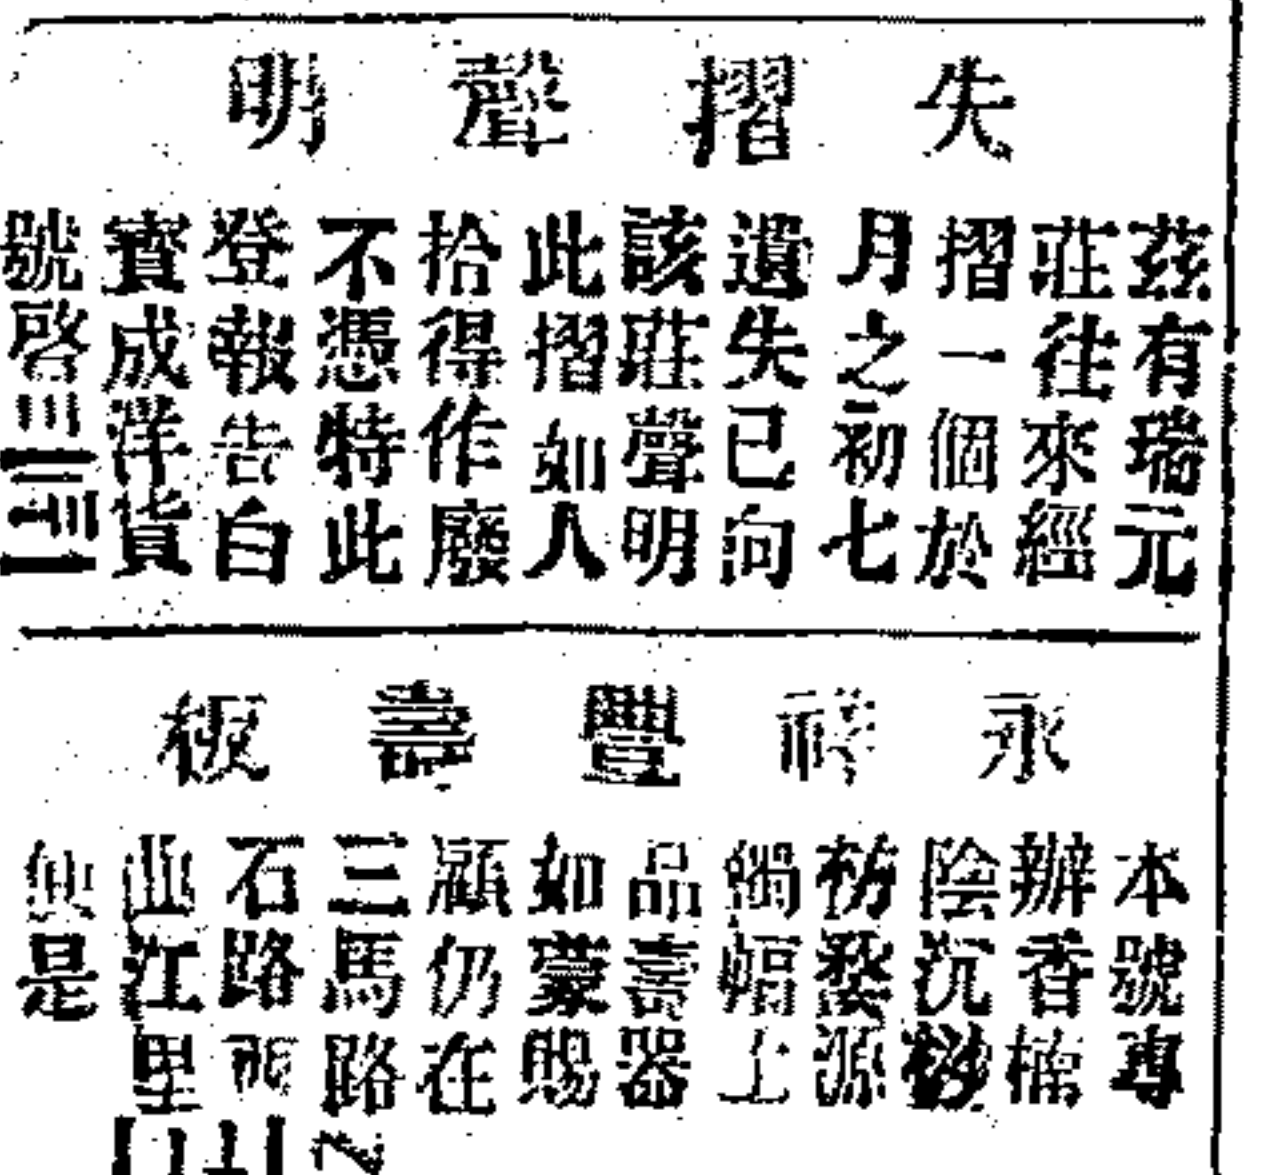 失摺聲明
茲有瑞元
莊往來經
摺一個於
月之初七
遺失已向
該莊聲明
此摺如人
拾得作廢
不憑特此
登報告白
寳成洋貨
號啓
永祥豐壽板
本號專
辦香楠
陰沉桫
枋婺源
蝙上
品壽器
如蒙賜
顧仍在
三馬路
石路西
江里
便是